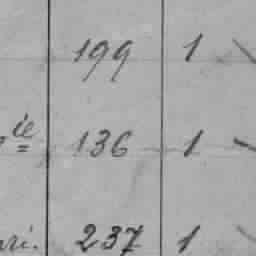 199 1
ie 136 1
ri. 237 1